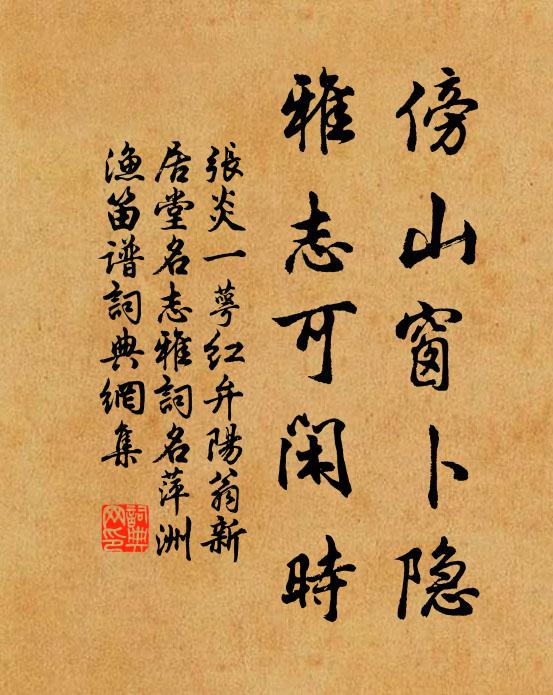 傍山窗卜隐
雅志可闲時
張炎一萼紅弁陽翁新
居堂名志雅詞名萍洲
漁笛谱詞典網集
詞典网印